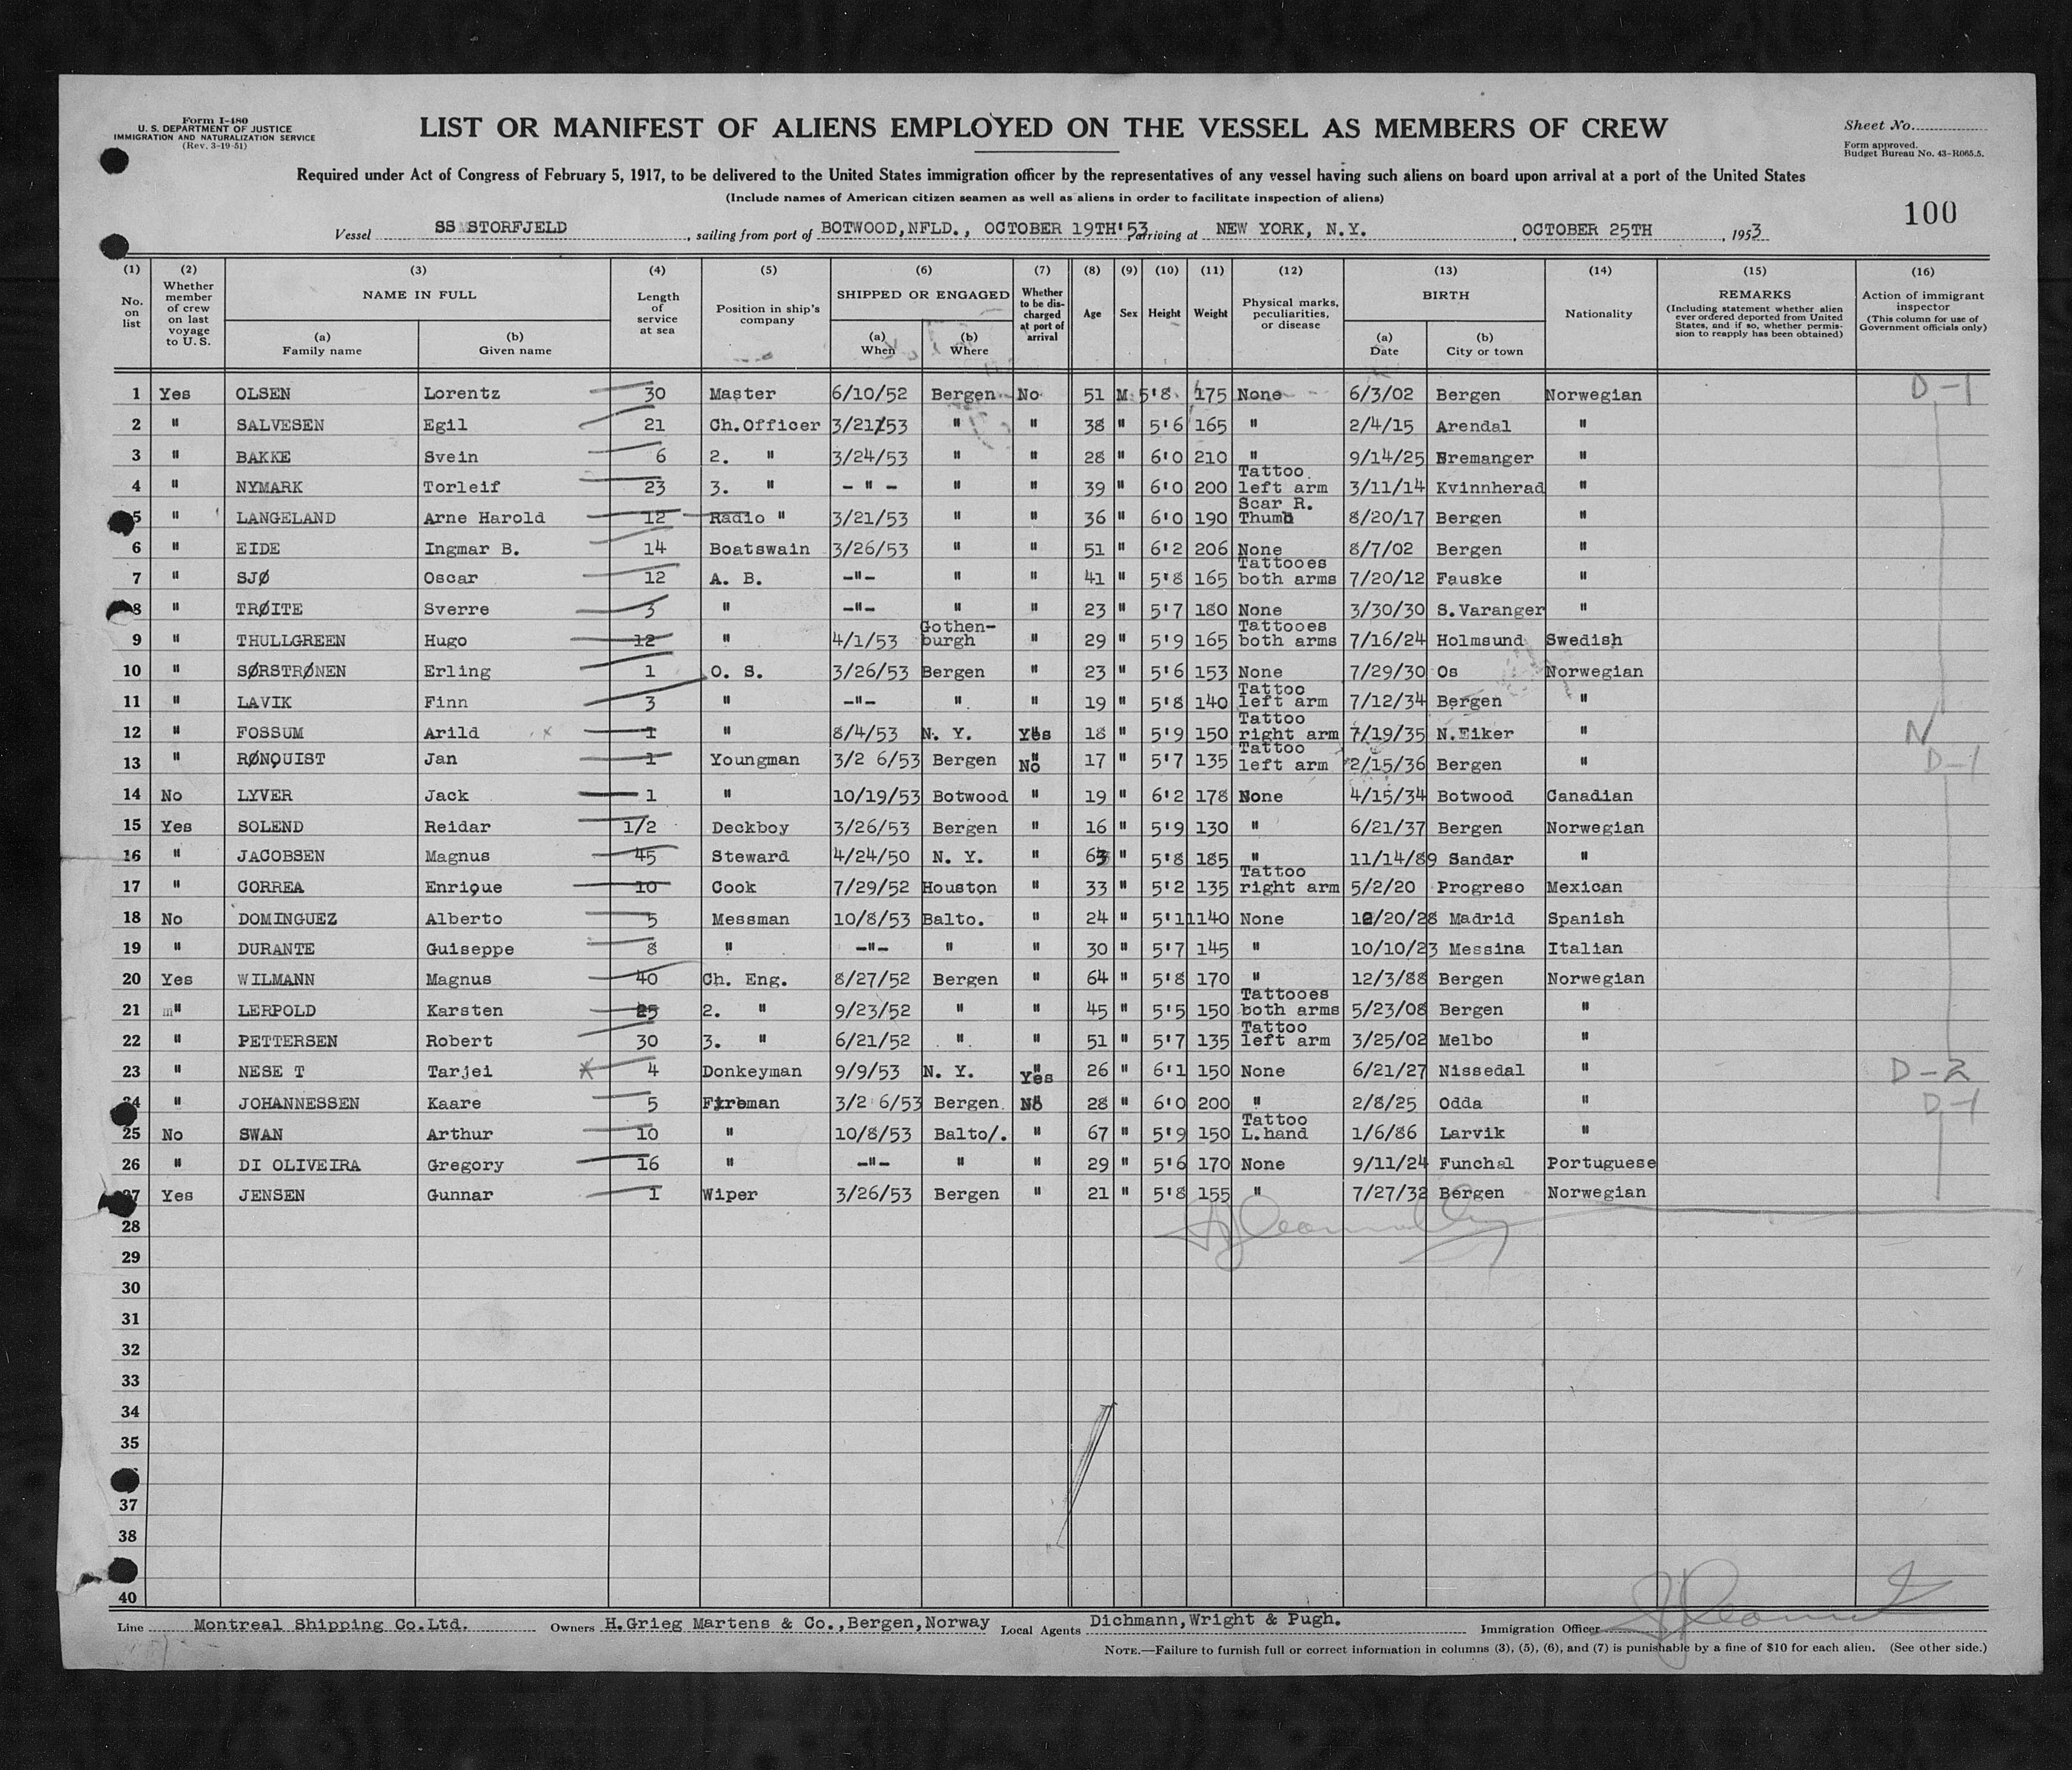 Form I-480
U. S. DEPARTMENT OF JUSTICE
IMMIGRATION AND NATURALIZATION SERVICE
(Rev. 3-19-51)
LIST OR MANIFEST OF ALIENS EMPLOYED ON THE VESSEL AS MEMBERS OF CREW
Sheet No.
Form approved.
Budget Bureau No. 43-R065.5.
Required under Act of Congress of February 5, 1917, to be delivered to the United States immigration officer by the representatives of any vessel having such aliens on board upon arrival at a port of the United States
(Include names of American citizen seamen as well as aliens in order to facilitate inspection of aliens)
100
Vessel SS STORFJELD, sailing from port of BOTWOOD,NFLD., OCTOBER 19TH'53, arriving at NEW YORK, N.Y., OCTOBER 25TH, 1953
(1) No. on list (2) Whether member of crew on last voyage to U.S. (3) NAME IN FULL (a) Family name (b) Given name (4) Length of service at sea (5) Position in ship's company (6) SHIPPED OR ENGAGED (a) When (b) Where (7) Whether to be discharged at port of arrival (8) Age (9) Sex (10) Height (11) Weight (12) Physical marks, peculiarities, or disease (13) BIRTH (a) Date (b) City or town (14) Nationality (15) REMARKS (Including statement whether alien ever ordered deported from United States, and if so, whether permission to reapply has been obtained) (16) Action of immigrant inspector (This column for use of Government officials only)
1 Yes OLSEN Lorentz 30 Master 6/10/52 Bergen No 51 M 5'8 175 None 6/3/02 Bergen Norwegian D-1
2 " SALVESEN Egil 21 Ch.Officer 3/21/53 " " 38 " 5'6 165 " 2/4/15 Arendal "
3 " BAKKE Svein 6 2. " 3/24/53 " " 28 " 6'0 210 " 9/14/25 Bremanger "
4 " NYMARK Torleif 23 3. " - " - " " 39 " 6'0 200 Tattoo left arm 3/11/14 Kvinnherad "
5 " LANGELAND Arne Harold 12 Radio " 3/21/53 " " 36 " 6'0 190 Scar R. Thumb 8/20/17 Bergen "
6 " EIDE Ingmar B. 14 Boatswain 3/26/53 " " 51 " 6'2 206 None 8/7/02 Bergen "
7 " SJØ Oscar 12 A. B. -"- " " 41 " 5'8 165 Tattooes both arms 7/20/12 Fauske "
8 " TRØITE Sverre 3 " -"- " " 23 " 5'7 180 None 3/30/30 S.Varanger "
9 " THULLGREEN Hugo 12 " 4/1/53 Gothen-burgh " 29 " 5'9 165 Tattooes both arms 7/16/24 Holmsund Swedish
10 " SØRSTRØNEN Erling 1 O. S. 3/26/53 Bergen " 23 " 5'6 153 None 7/29/30 Os Norwegian
11 " LAVIK Finn 3 " -"- " " 19 " 5'8 140 Tattoo left arm 7/12/34 Bergen "
12 " FOSSUM Arild x 1 " 8/4/53 N. Y. Yes 18 " 5'9 150 Tattoo right arm 7/19/35 N.Eiker " N
13 " RØNQUIST Jan 1 Youngman 3/2 6/53 Bergen No 17 " 5'7 135 Tattoo left arm 2/15/36 Bergen " D-1
14 No LYVER Jack 1 " 10/19/53 Botwood " 19 " 6'2 178 None 4/15/34 Botwood Canadian
15 Yes SOLEND Reidar 1/2 Deckboy 3/26/53 Bergen " 16 " 5'9 130 " 6/21/37 Bergen Norwegian
16 " JACOBSEN Magnus 45 Steward 4/24/50 N. Y. " 63 " 5'8 185 " 11/14/89 Sandar "
17 " CORREA Enrique 10 Cook 7/29/52 Houston " 33 " 5'2 135 Tattoo right arm 5/2/20 Progreso Mexican
18 No DOMINGUEZ Alberto 5 Messman 10/8/53 Balto. " 24 " 5'11 140 None 12/20/28 Madrid Spanish
19 " DURANTE Guiseppe 8 " -"- " " 30 " 5'7 145 " 10/10/23 Messina Italian
20 Yes WILMANN Magnus 40 Ch. Eng. 8/27/52 Bergen " 64 " 5'8 170 " 12/3/88 Bergen Norwegian
21 " LERPOLD Karsten 25 2. " 9/23/52 " " 45 " 5'5 150 Tattooes both arms 5/23/08 Bergen "
22 " PETTERSEN Robert 30 3. " 6/21/52 " " 51 " 5'7 135 Tattoo left arm 3/25/02 Melbo "
23 " NESE T Tarjei x 4 Donkeyman 9/9/53 N. Y. Yes 26 " 6'1 150 None 6/21/27 Nissedal " D-2
24 " JOHANNESSEN Kaare 5 Fireman 3/2 6/53 Bergen No 28 " 6'0 200 " 2/8/25 Odda " D-1
25 No SWAN Arthur 10 " 10/8/53 Balto/. " 67 " 5'9 150 Tattoo L.hand 1/6/86 Larvik "
26 " DI OLIVEIRA Gregory 16 " -"- " " 29 " 5'6 170 None 9/11/24 Funchal Portuguese
27 Yes JENSEN Gunnar 1 Wiper 3/26/53 Bergen " 21 " 5'8 155 " 7/27/32 Bergen Norwegian
28
29
30
31
32
33
34
35
37
38
40
Line Montreal Shipping Co.Ltd. Owners H.Grieg Martens & Co.,Bergen,Norway Local Agents Dichmann,Wright & Pugh. Immigration Officer
NOTE.—Failure to furnish full or correct information in columns (3), (5), (6), and (7) is punishable by a fine of $10 for each alien. (See other side.)